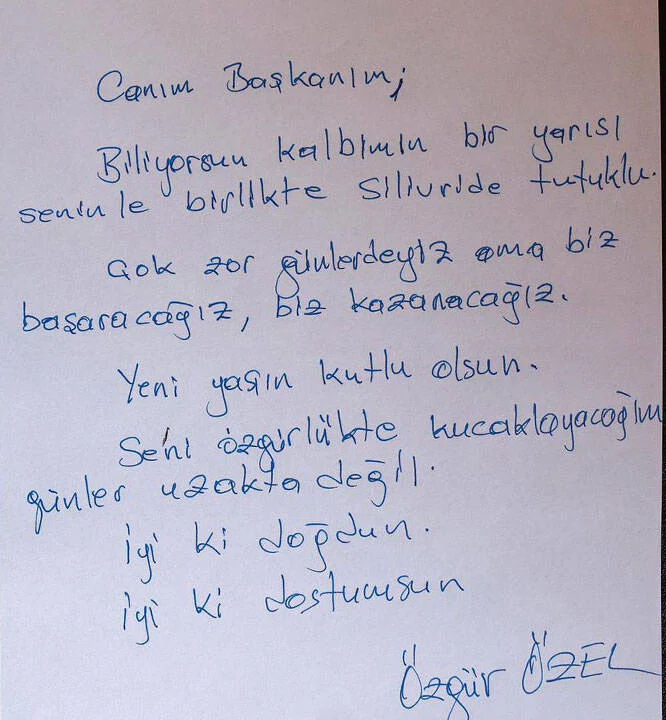 Canım Başkanım;
Biliyorsun kalbimin bir yarısı
seninle birlikte Silivride tutuklu.
Çok zor günlerdeyiz ama biz
başaracağız, biz kazanacağız.
Yeni yaşın kutlu olsun.
Seni özgürlükte kucaklayacağım
günler uzakta değil.
İyi ki doğdun.
İyi ki dostumsun
Özgür ÖZEL